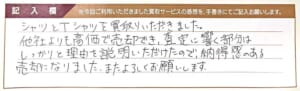 記入欄 ※今回ご利用いただきました買取サービスの感想を、手書きにてご記入お願いします。
シャツとTシャツを買取りいただきました。
他社よりも高価で売却でき、査定に響く部分は
しっかりと理由を説明いただけたので、納得感のある
売却になりました。またよろしくお願いします。